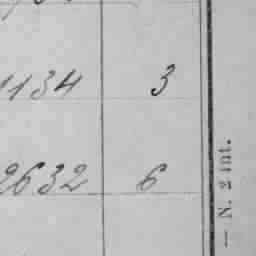 1134 3
2632 6
— N. 2 int.